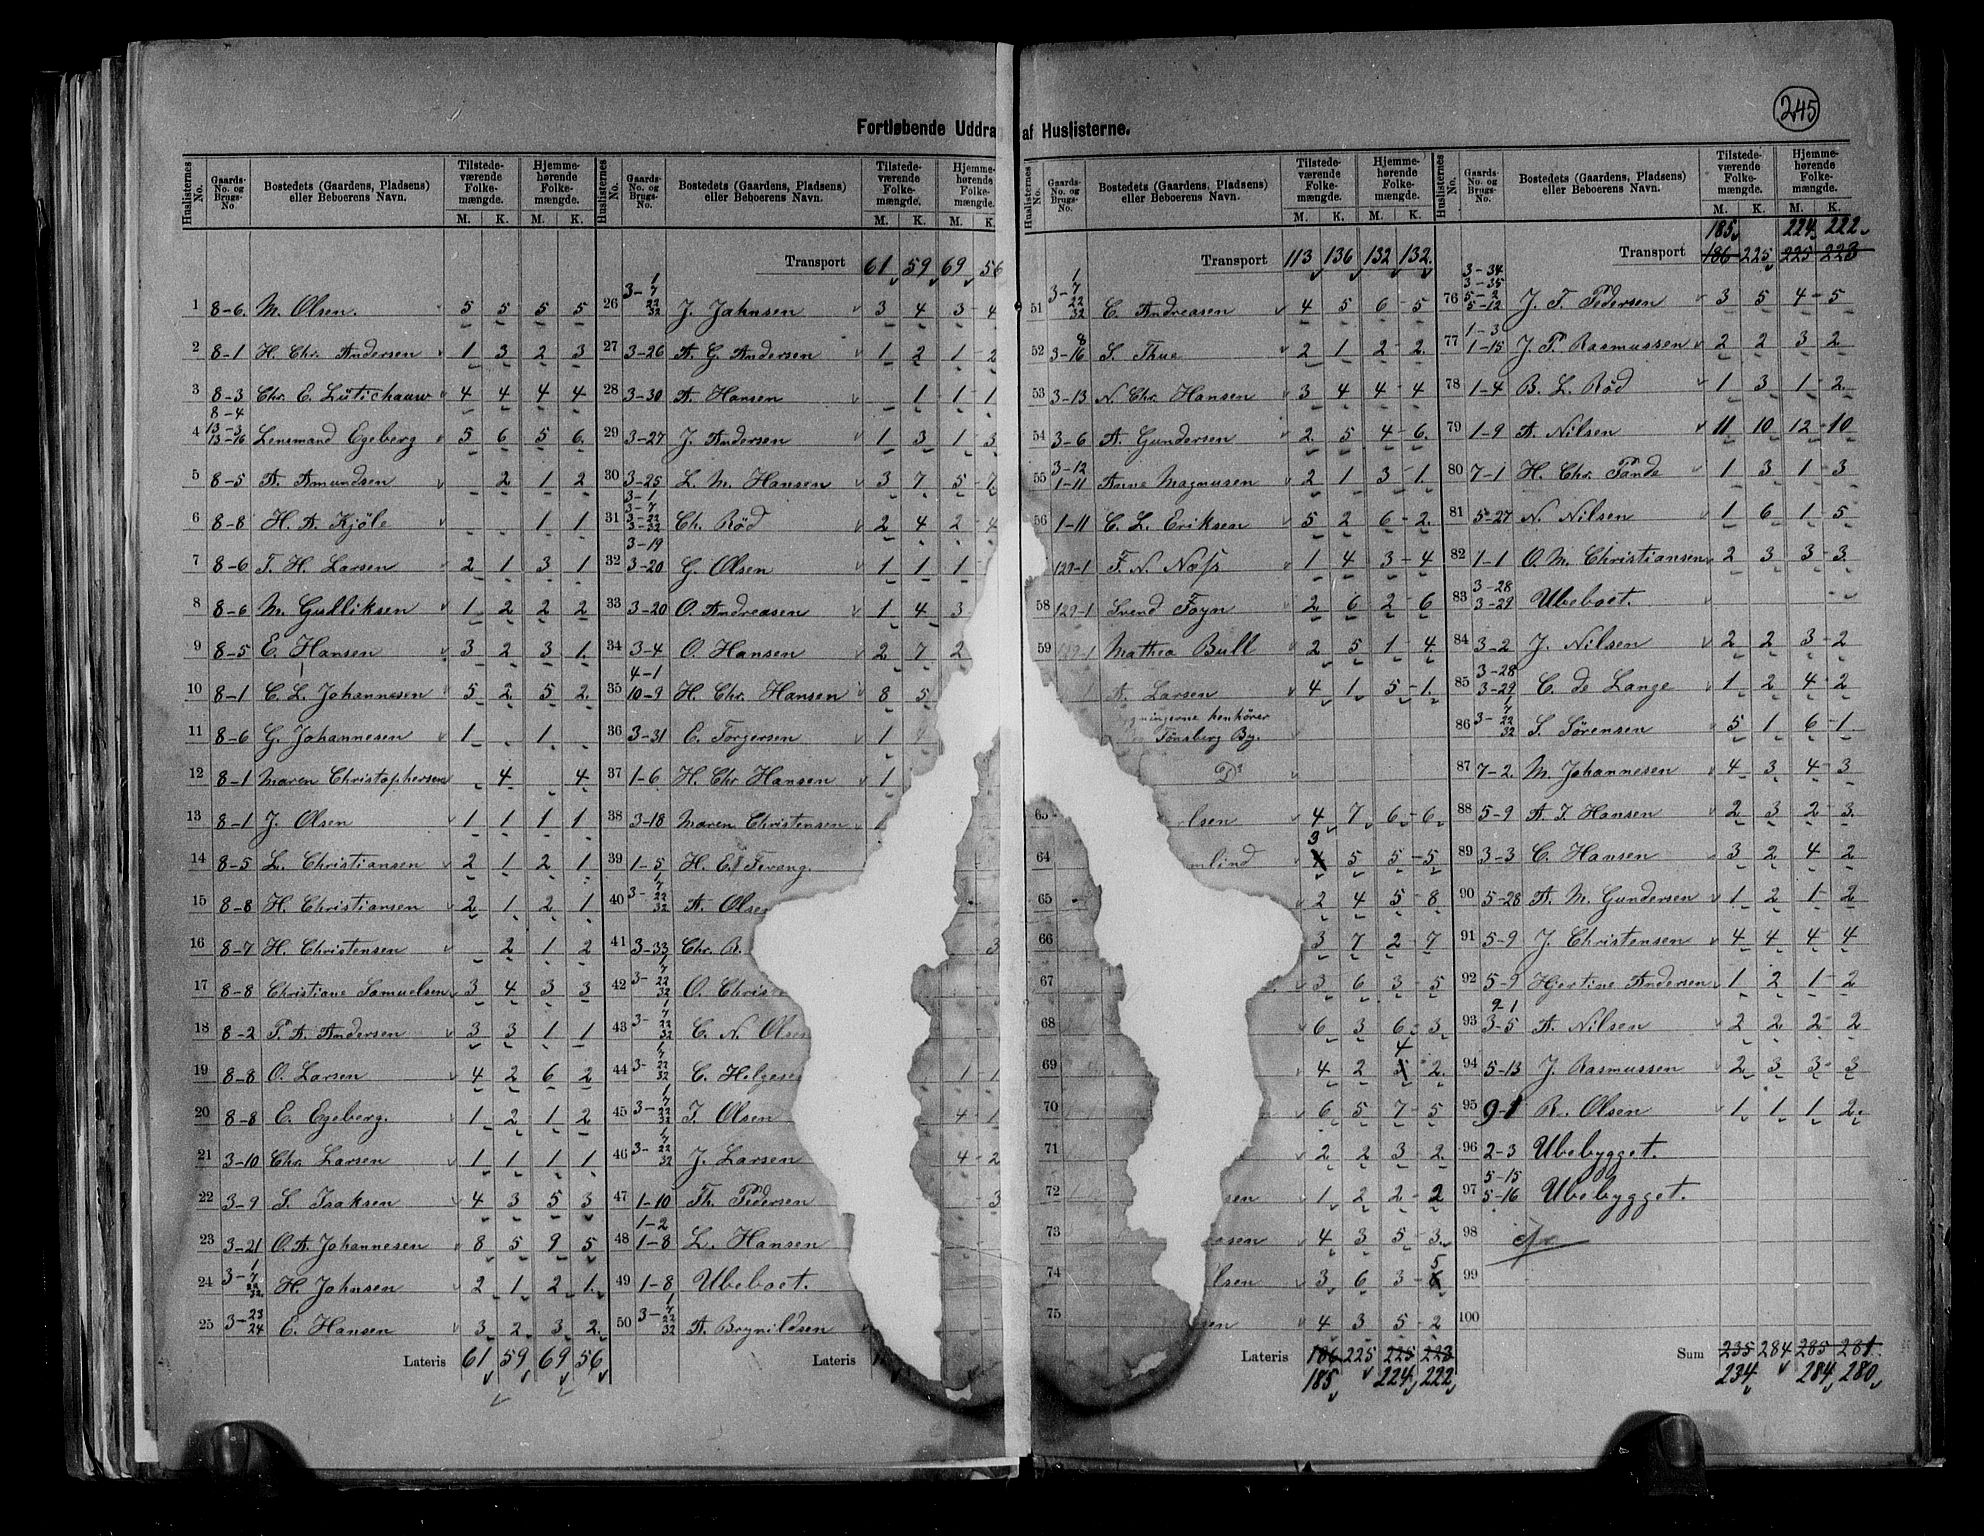 245
Fortløbende Uddra af Huslisterne.
Huslisternes No. Gaards-No. og Brugs-No. Bostedets (Gaardens, Pladsens) eller Beboerens Navn. Tilstedeværende Folkemængde. M. K. Hjemmehørende Folkemængde. M. K.
1 8-6 M. Olsen. 5 5 5 5
2 8-1 H. Chr. Andersen 1 3 2 3
3 8-3 Chr. E. Lütichauw 4 4 4 4
4 8-4 13-3 13-16 Lensmand Egeberg 5 6 5 6
5 8-5 A. Amundsen 2 1 2
6 8-8 H. A. Kjöle 1 1
7 8-6 T. H. Larsen 2 1 3 1
8 8-6 M. Gulliksen 1 2 2 2
9 8-5 E. Hansen 3 2 3 1
10 8-1 C. L. Johannesen 5 2 5 2
11 8-6 G. Johannesen 1 1
12 8-1 Maren Christophersen 4 4
13 8-1 J. Olsen 1 1 1 1
14 8-5 L. Christiansen 2 1 2 1
15 8-8 H. Christiansen 2 1 2 1
16 8-7 H. Christensen 2 1 2
17 8-8 Christiane Samuelsen 3 4 3 3
18 8-2 P. A. Andersen 3 3 1 1
19 8-8 O. Larsen 4 2 6 2
20 8-8 E. Egeberg. 1 2 1 2
21 3-10 Chr. Larsen 1 1 1 1
22 3-9 S. Isaksen 4 3 5 3
23 3-21 O. A. Johannesen 8 5 9 5
24 3-1 7 22 32 H. Johnsen 2 1 2 1
25 3-23 24 E. Hansen 3 2 3 2
Lateris 61 59 69 56
Huslisternes No. Gaards-No. og Brugs-No. Bostedets (Gaardens, Pladsens) eller Beboerens Navn. Tilstedeværende Folkemængde. M. K. Hjemmehørende Folkemængde. M. K.
Transport 61 59 69 56
26 3-1 7 22 32 J. Jahnsen 3 4 3-4
27 3-26 A. G. Andersen 1 2 1 2
28 3-30 A. Hansen 1 1-1
29 3-27 J. Andersen 1 3 1-3
30 3-25 L. M. Hansen 3 7 5-7
31 3-1 3-7 3-22 3-32 Ch. Röd 2 4 2-4
32 3-19 3-20 G. Olsen 1 1 1
33 3-20 O. Andreasen 1 4 3
34 3-4 O. Hansen 2 7 2
35 4-1 10-9 H. Chr. Hansen 8 5
36 3-31 E. Torgersen 1
37 1-6 H. Chr. Hansen 1
38 3-18 Maren Christensen
39 1-5 H. C. Tevang.
40 3-1 7 22 32 A. Olse
41 3-33 Chr. B. 3
42 3-1 7 22 32 O. Christ
43 3-1 7 22 32 C. N. Olsen
44 3-1 7 22 32 C. Helgesen 1-1
45 3-1 7 22 32 T. Olsen 4-1
46 3-1 7 22 32 J. Larsen 4-2
47 1-10 Th. Pedersen -3
48 1-2 1-8 L. Hansen
49 1-8 Ubeboet.
50 3-1 7 22 32 A. Brynildsen
Lateris
No. Gaards-No. og Brugs-No. Bostedets (Gaardens, Pladsens) eller Beboerens Navn. Tilstedeværende Folkemængde. M. K. Hjemmehørende Folkemængde. M. K.
Transport 113 136 132 132
51 3-1 7 22 32 C. Andreasen 4 5 6-5
52 3-8 3-16 S. Thue 2 1 2-2
53 3-13 N. Chr. Hansen 3 4 4-4
54 3-6 A. Gundersen 2 5 4-6
55 3-12 1-11 Anne Magnusen 2 1 3-1
56 1-11 C. L. Eriksen 5 2 6-2
129-1 F. N. Næss 1 4 3-4
58 129-1 Svend Foyn 2 6 2-6
59 129-1 Mathea Bull 2 5 1-4
A. Larsen 4 1 5-1
gningerne henhörer
Tönsberg By.
Do
63 rlsen 4 7 6-6
64 mlind 3 4 5 5-5
65 2 4 5-8
66 3 7 2-7
67 3 6 3-5
68 6 3 6-3
69 4 2 4 5-2
70 6 5 7-5
71 2 2 3 2
72 sen 1 2 2-2
73 osen 4 3 5-3
74 lsen 3 6 3-5 6
75 sen 4 3 5-2
Lateris 186 225 225 223
185 224 222
Huslisternes No. Gaards-No. og Brugs-No. Bostedets (Gaardens, Pladsens) eller Beboerens Navn. Tilstedeværende Folkemængde. M. K. Hjemmehørende Folkemængde. M. K.
185 224 222
Transport 186 225 225 223
76 3-34 3-35 5-2 5-12 J. T. Pedersen 3 5 4-5
77 1-3 1-15 J. P. Rasmussen 2 2 3 2
78 1-4 B. L. Röd 1 3 1-2
79 1-9 A. Nilsen 11 10 12-10
80 7-1 H. Chr. Pande 1 3 1-3
81 5-27 N. Nilsen 1 6 1-5
82 1-1 O. M. Christiansen 2 3 3-3
83 3-28 3-29 Ubeboet.
84 3-2 J. Nilsen 2 2 3-2
85 3-28 3-29 C. de Lange 1 2 4-2
86 3-1 7 22 32 S. Sörensen 5 1 6-1
87 7-2 M. Johannesen 4 3 4-3
88 5-9 A. T. Hansen 2 3 2-3
89 3-3 C. Hansen 3 2 4 2
90 5-28 A. M. Gundersen 1 2 1-2
91 5-9 J. Christensen 4 4 4-4
92 5-9 Hjertine Andersen 1 2 1-2
93 2-1 3-5 A. Nilsen 2 2 2-2
94 5-13 J. Rasmussen 2 3 3-3
95 9-1 R. Olsen 1 1 1 2
96 2-3 Ubebygget.
97 5-15 5-16 Ubebygget.
98
99
100
Sum 235 284 285 281
234 284 280